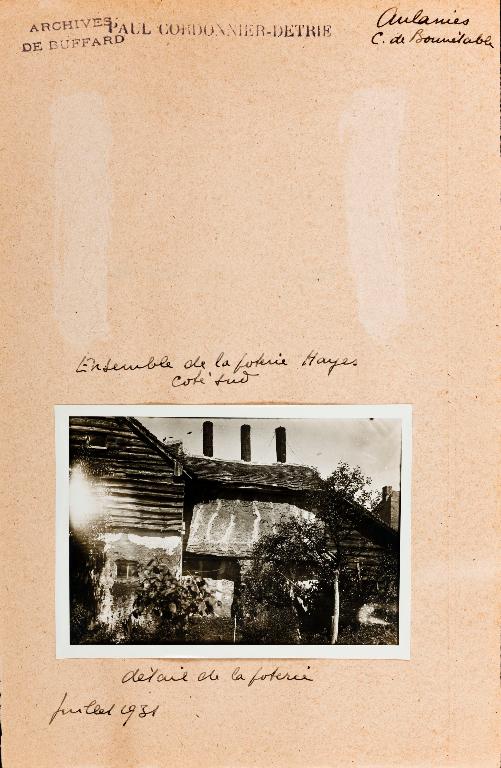 ARCHIVES
DE BUFFARD
PAUL CORDONNIER-DETRIE
Aulaines
C. de Bonnétable
Ensemble de la poterie Hayes
coté sud
détail de la poterie
Juillet 1931